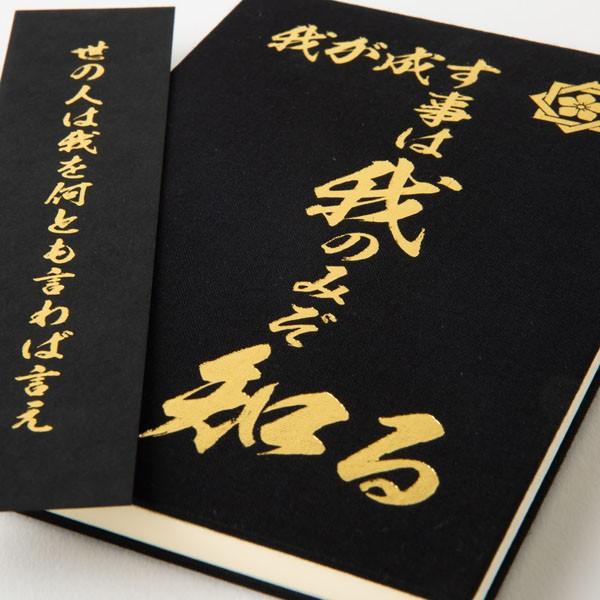 世の人は我を何とも言わば言え
我が成す
事は
我のみぞ
知る